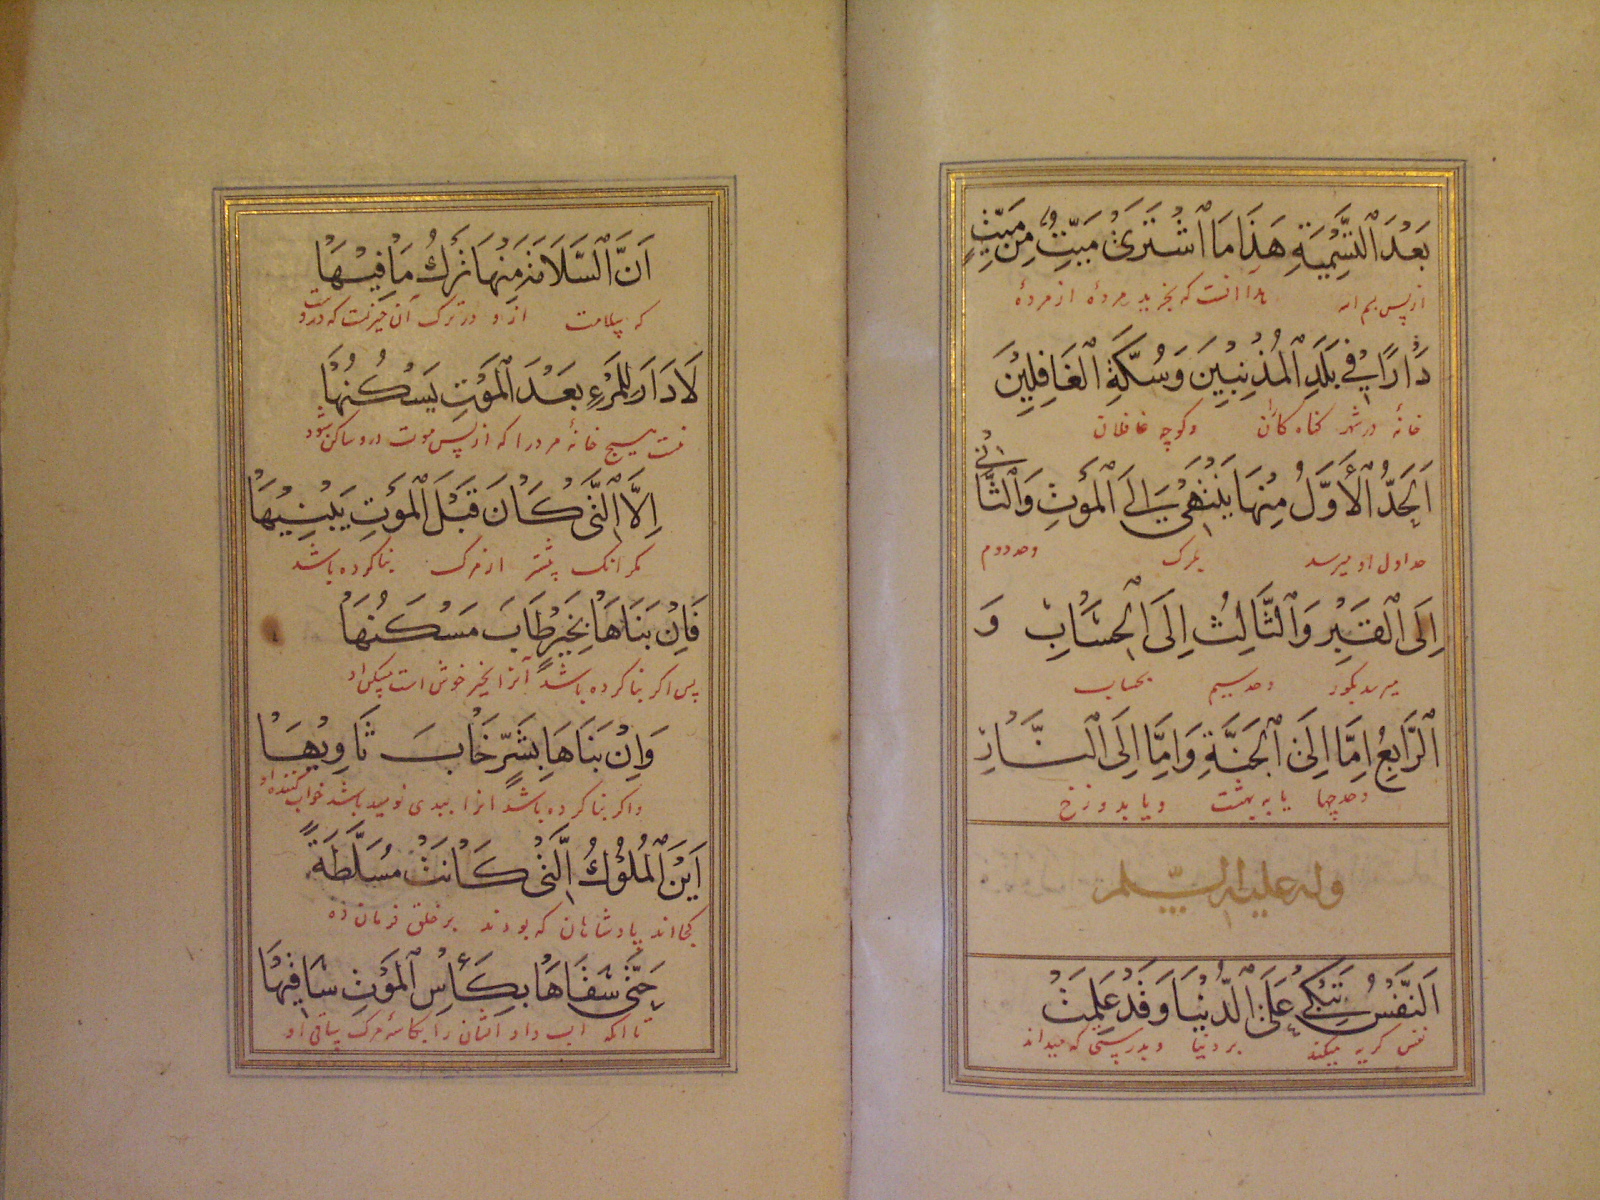 بَعْدَ ٱلتَّسْمِيَةِ هَذَا مَا ٱشْتَرَىٰ مَيِّتٌ مِنْ مَيِّتٍ
از پس بم اله ہذا انست که بخرید مردهٔ از مردهٔ
دَارًا فِي بَلَدِ ٱلْمُذْنِبِينَ وَسُكَّةِ ٱلْغَافِلِينَ
خانهٔ در شهر کناه کاران و کوچه غافلان
اَلْحَدُّ ٱلْأَوَّلُ مِنْهَا يَنْتَهِي إِلَى ٱلْمَوْتِ وَٱلثَّانِي
حد اول او میرسد بمرک و حد دوم
إِلَى ٱلْقَبْرِ وَٱلثَّالِثُ إِلَى ٱلْحِسَابِ وَ
میرسد بکور و حد سیم بحساب
ٱلرَّابِعُ اِمَّا اِلَى ٱلْجَنَّةِ وَاِمَّا اِلَى ٱلنَّارِ
و حد چهارم یا به بهشت و یا بدوزخ
وله عليه السلام
اَلنَّفْسُ تَبْكِي عَلَى ٱلدُّنْيَا وَقَدْ عَلِمَتْ
نفس کریه میکند بر دنیا و بدرستی که میداند
اَنَّ ٱلسَّلَامَةَ مِنْهَا تَرْكُ مَا فِيْهَا
که سلامت از او در ترک آن چیزیست که دروست
لَا دَارَ لِلْمَرْءِ بَعْدَ ٱلْمَوْتِ يَسْكُنُهَا
نیست هیچ خانهٔ مرد را که از پس موت درو ساکن شود
اِلَّا ٱلَّتِي كَانَ قَبْلَ ٱلْمَوْتِ يَبْنِيْهَا
مکر انک پیشتر از مرک بنا کرده باشد
فَاِنْ بَنَاهَا بِخَيْرٍ طَابَ مَسْكَنُهَا
پس اکر بنا کرده باشد آنرا بخیر خوش است مسکن او
وَاِنْ بَنَاهَا بِشَرٍّ خَابَ ثَاوِيهَا
و اکر بنا کرده باشد انرا ببدی نومید باشد خواب کننده او
اَيْنَ ٱلْمُلُوْكُ ٱلَّتِي كَانَتْ مُسَلَّطَةً
کجااند پادشاهان که بودند بر خلق فرمان ده
حَتَّى سَقَاهَا بِكَأْسِ ٱلْمَوْتِ سَاقِيْهَا
تا انکه اب داد ایشان را بکاسهٔ مرک ساقی او